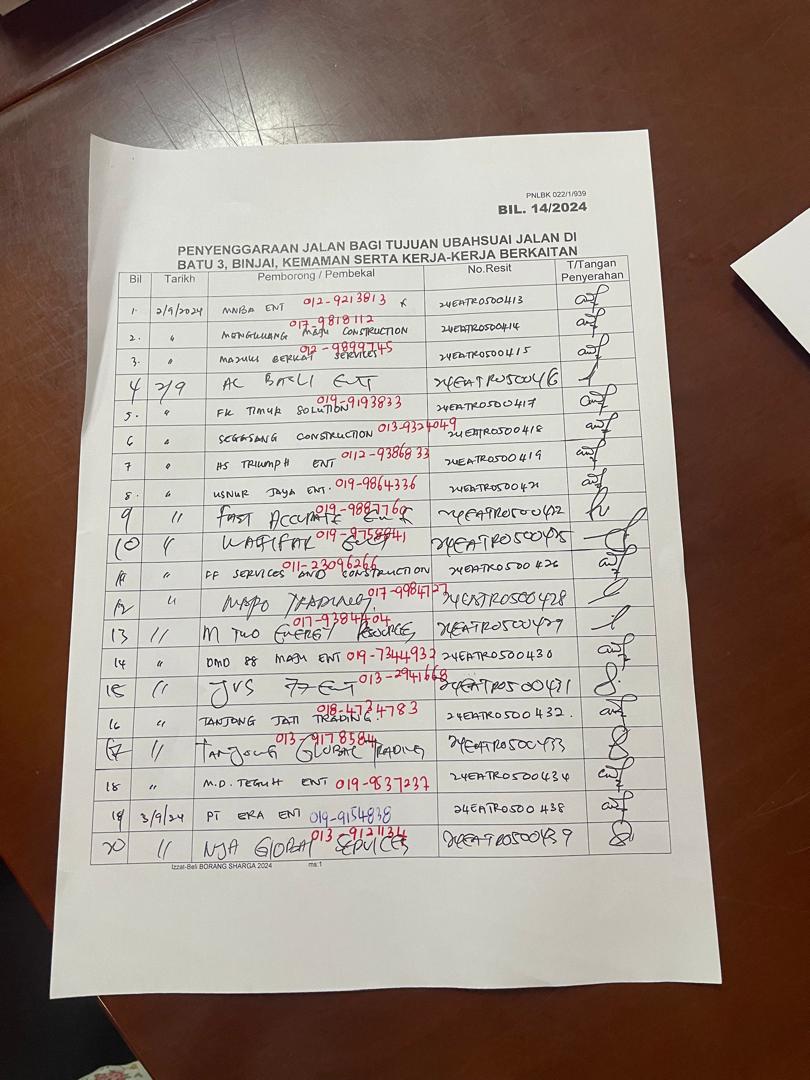 PNLBK 022/1/939
BIL. 14/2024
PENYENGGARAAN JALAN BAGI TUJUAN UBAHSUAI JALAN DI
BATU 3, BINJAI, KEMAMAN SERTA KERJA-KERJA BERKAITAN
Bil Tarikh Pemborong / Pembekal No.Resit T/Tangan Penyerahan
1. 2/9/2024 MNBA ENT 012-9213813 x 24EATR0500413
2. " MENGKUANG MAJU CONSTRUCTION 017-9818112 24EATR0500414
3. " BERKAT SERVICES 012-9899745 24EATR0500415
4 2/9 AC ENT 24EATR0500416
5. " FK TIMUR SOLUTION 019-9193833 24EATR0500417
6 " SEGASANG CONSTRUCTION 013-9324049 24EATR0500418
7 " HS TRIUMPH ENT 0112-9386833 24EATR0500419
8. " USNUR JAYA ENT. 019-9864336 24EATR0500421
9 " FAST ACCURATE ENT 24EATR0500422
10 " ENT 24EATR0500425
11 " FF SERVICES AND CONSTRUCTION 011-23096266 24EATR0500426
12 " TRADING. 017-9984727 24EATR0500428
13 " M TWO ENERGY RESOURCES 017-9384404 24EATR0500429
14 " DMD 88 MAJU ENT 019-7344932 24EATR0500430
15 " JVS 77 ENT 013-2941668 24EATR0500431
16 " TANJONG JATI TRADING. 018-4734783 24EATR0500432.
17 " TANJONG GLOBAL TRADING 013-9178584 24EATR0500433
18 " M.D. TEGUH ENT 019-9837237 24EATR0500434
19 3/9/24 PT ERA ENT 019-9154838 24EATR0500438
20 " NJA GLOBAL SERVICES 013-9121134 24EATR0500439
Izzat-Beli BORANG SHARGA 2024 ms:1